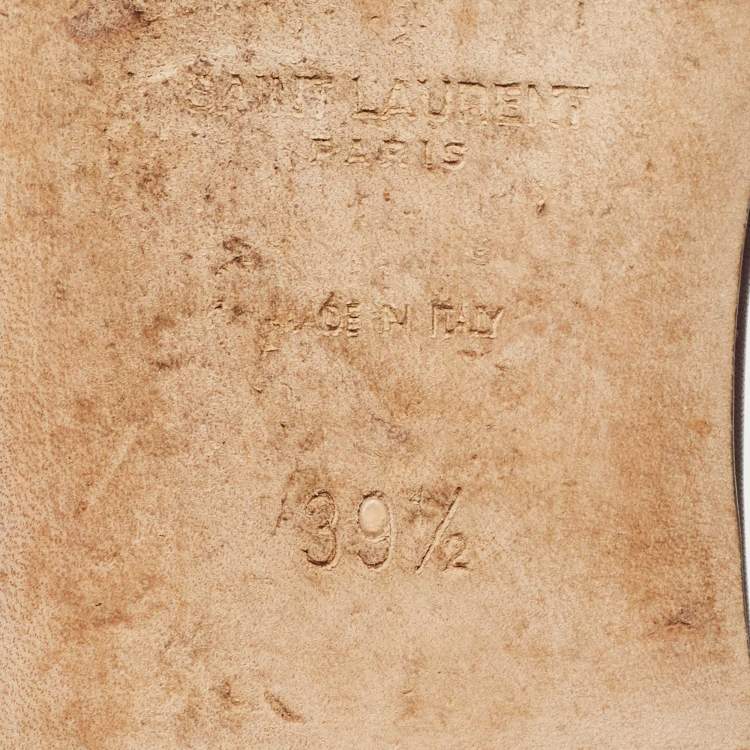 SAINT LAURENT
PARIS
MADE IN ITALY
39½